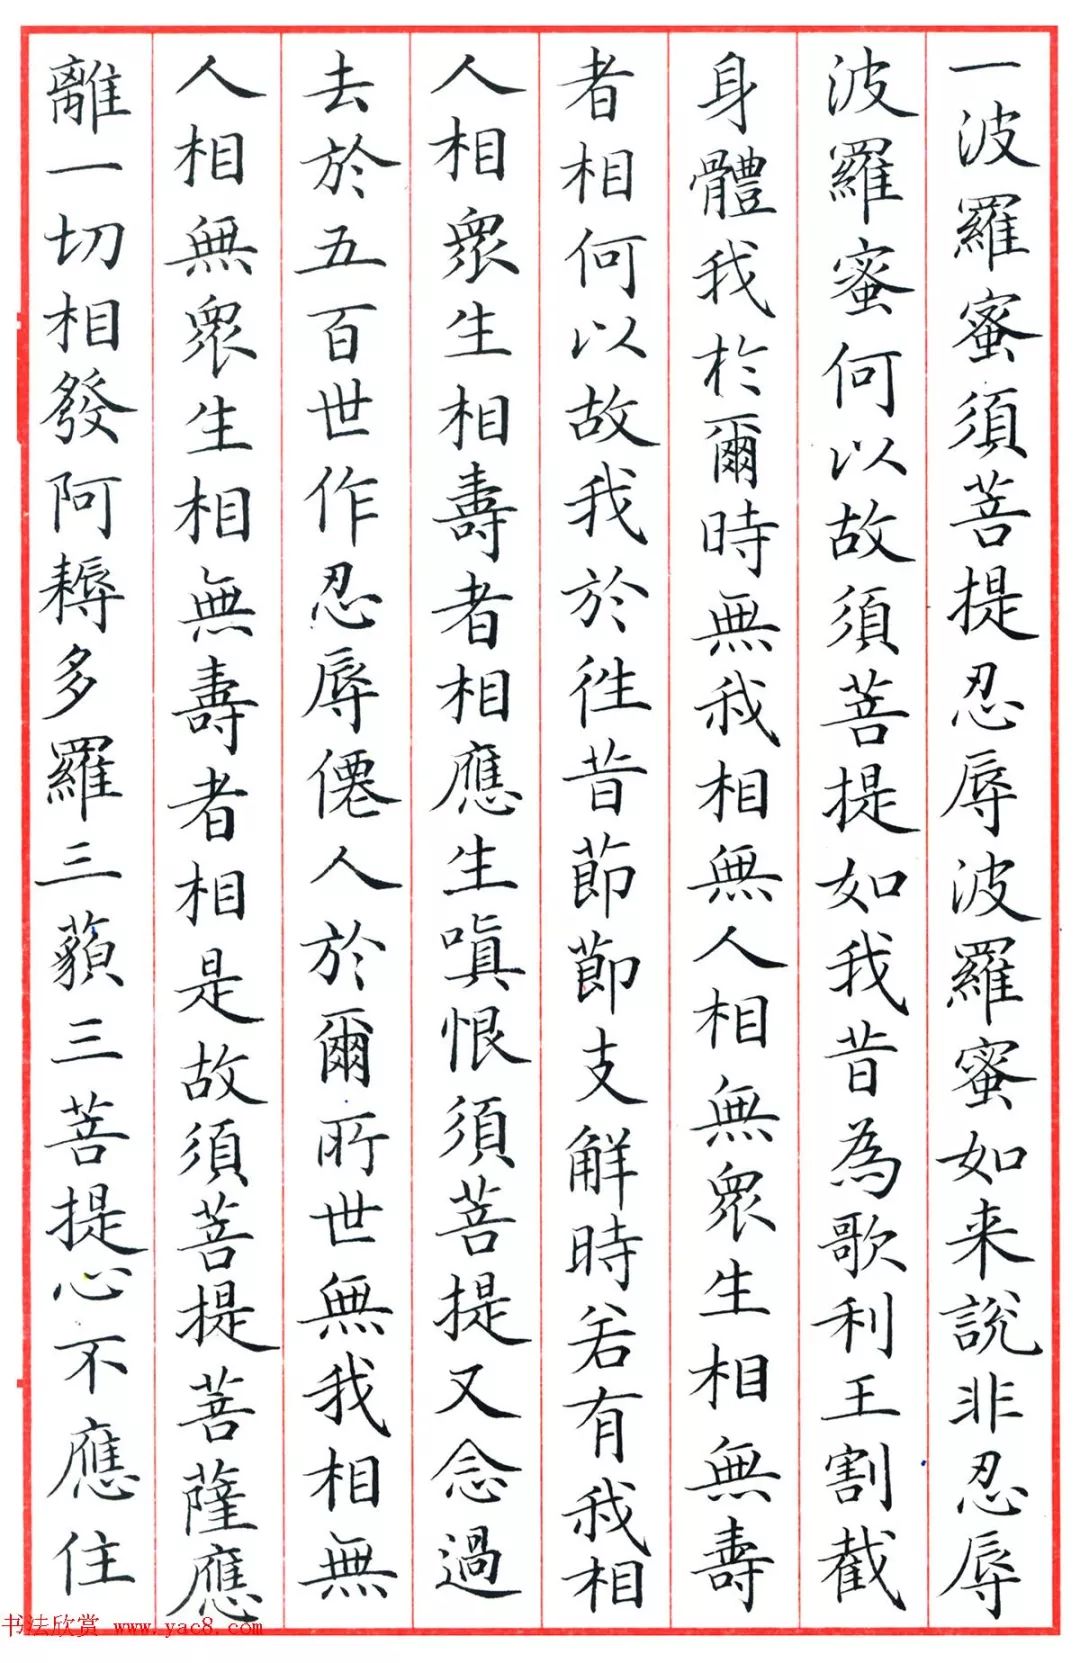 一波羅蜜須菩提忍辱波羅蜜如来說非忍辱
波羅蜜何以故須菩提如我昔為歌利王割截
身體我於爾時無我相無人相無衆生相無壽
者相何以故我於往昔節節支解時若有我相
人相衆生相壽者相應生嗔恨須菩提又念過
去於五百世作忍辱僊人於爾所世無我相無
人相無衆生相無壽者相是故須菩提菩薩應
離一切相發阿耨多羅三藐三菩提心不應住
书法欣赏 www.yac8.com